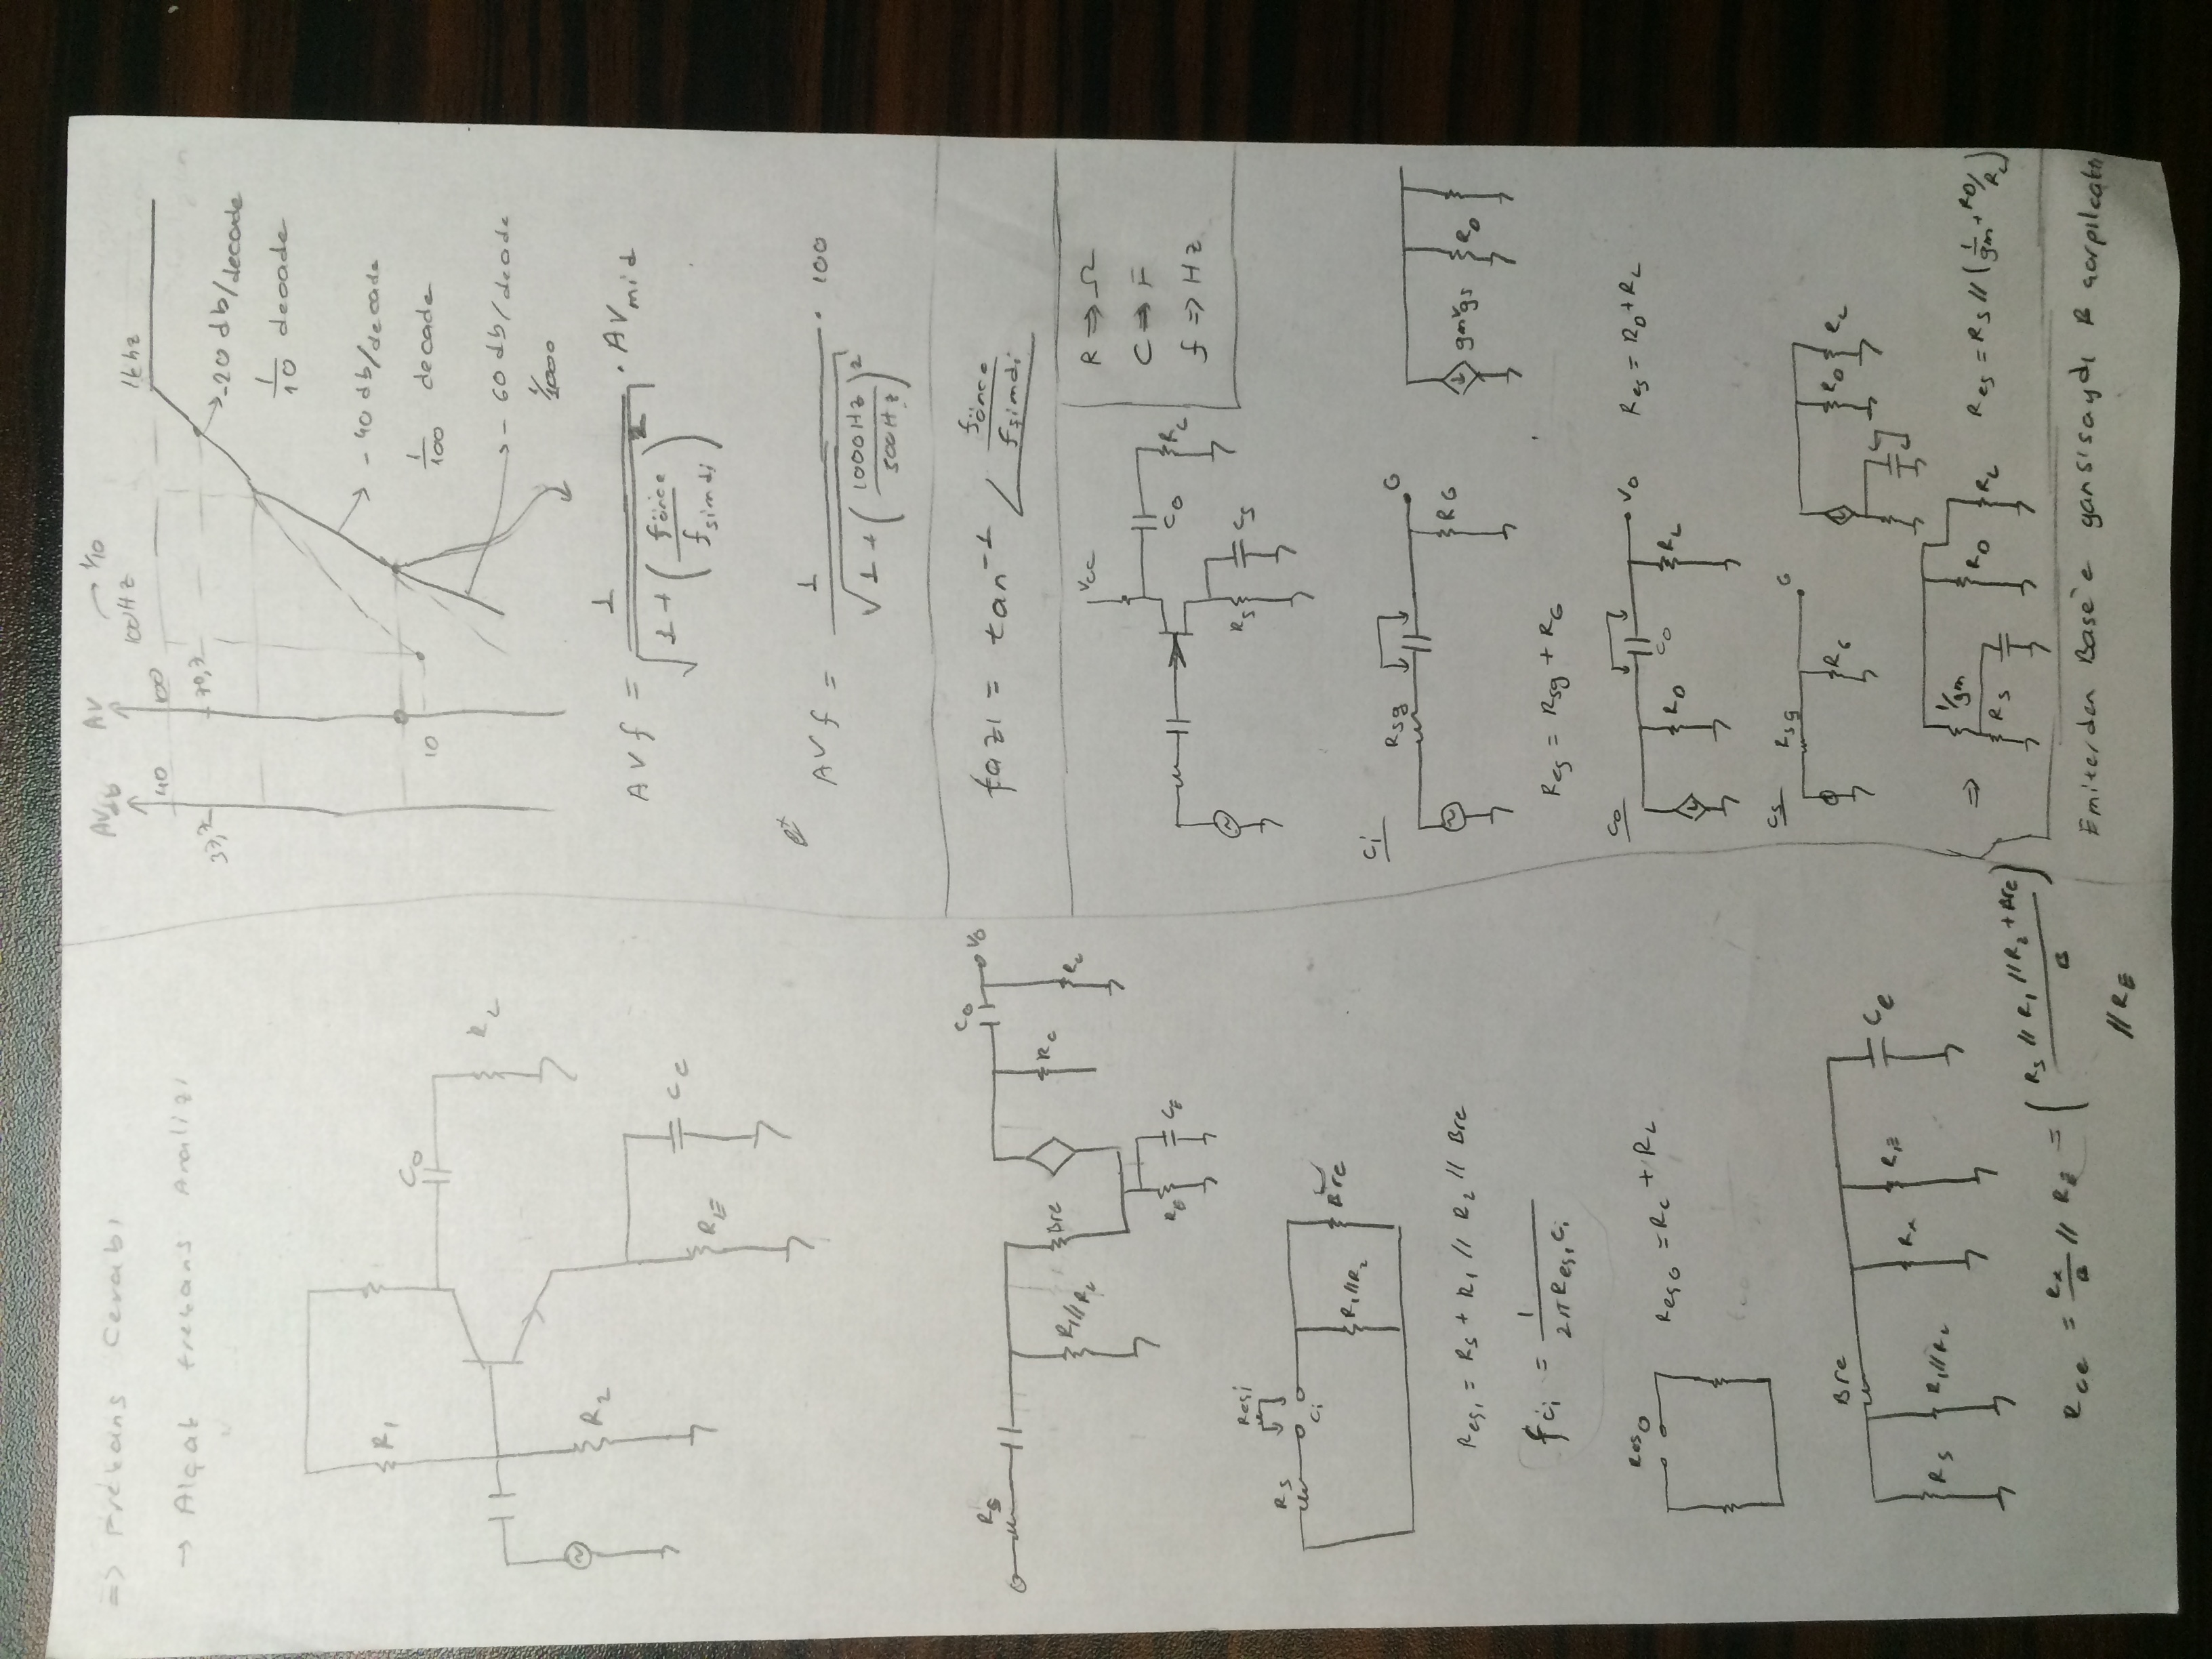 => Frekans Cevabı
→ Alçak frekans Analizi
R1
C0
RL
R2
RE
CC
RS
C0
V0
R1//R2
Bre
RC
RL
RE
CE
Resi
RS
Ci
R1//R2
Bre
Res1 = RS + R1 // R2 // Bre
fci = 1 / 2πRes1Ci
Res0
Res0 = RC + RL
Bre
RS
R1//R2
Rx
RE
Ce
Rce = Rx/B // RE = ( RS // R1 // R2 + Bre / B )
// RE
AVdb
AV
100Hz → 1/10
1khz
40
100
37,7
70,7
→ -20 db/decade
1/10 decade
→ - 40 db/decade
10
1/100 decade
→ - 60 db/deade
1/1000
AVf = 1 / √(1 + (fönce / fşimdi)²) · AVmid
AVf = 1 / √(1 + (1000Hz / 500Hz)²) · 100
fazı = tan⁻¹ ∠ fönce / fşimdi
R => Ω
C => F
f => Hz
VCC
C0
RL
RS
CS
Ci
Rsg
G
RG
gmVgs
RD
Res = Rsg + RG
C0
V0
RD
C0
RL
Res = RD + RL
CS
Rsg
G
RG
RD
RL
=>
1/gm
RS
RD
RL
Res = RS // (1/gm + RD/RL)
Emiterden Base'e